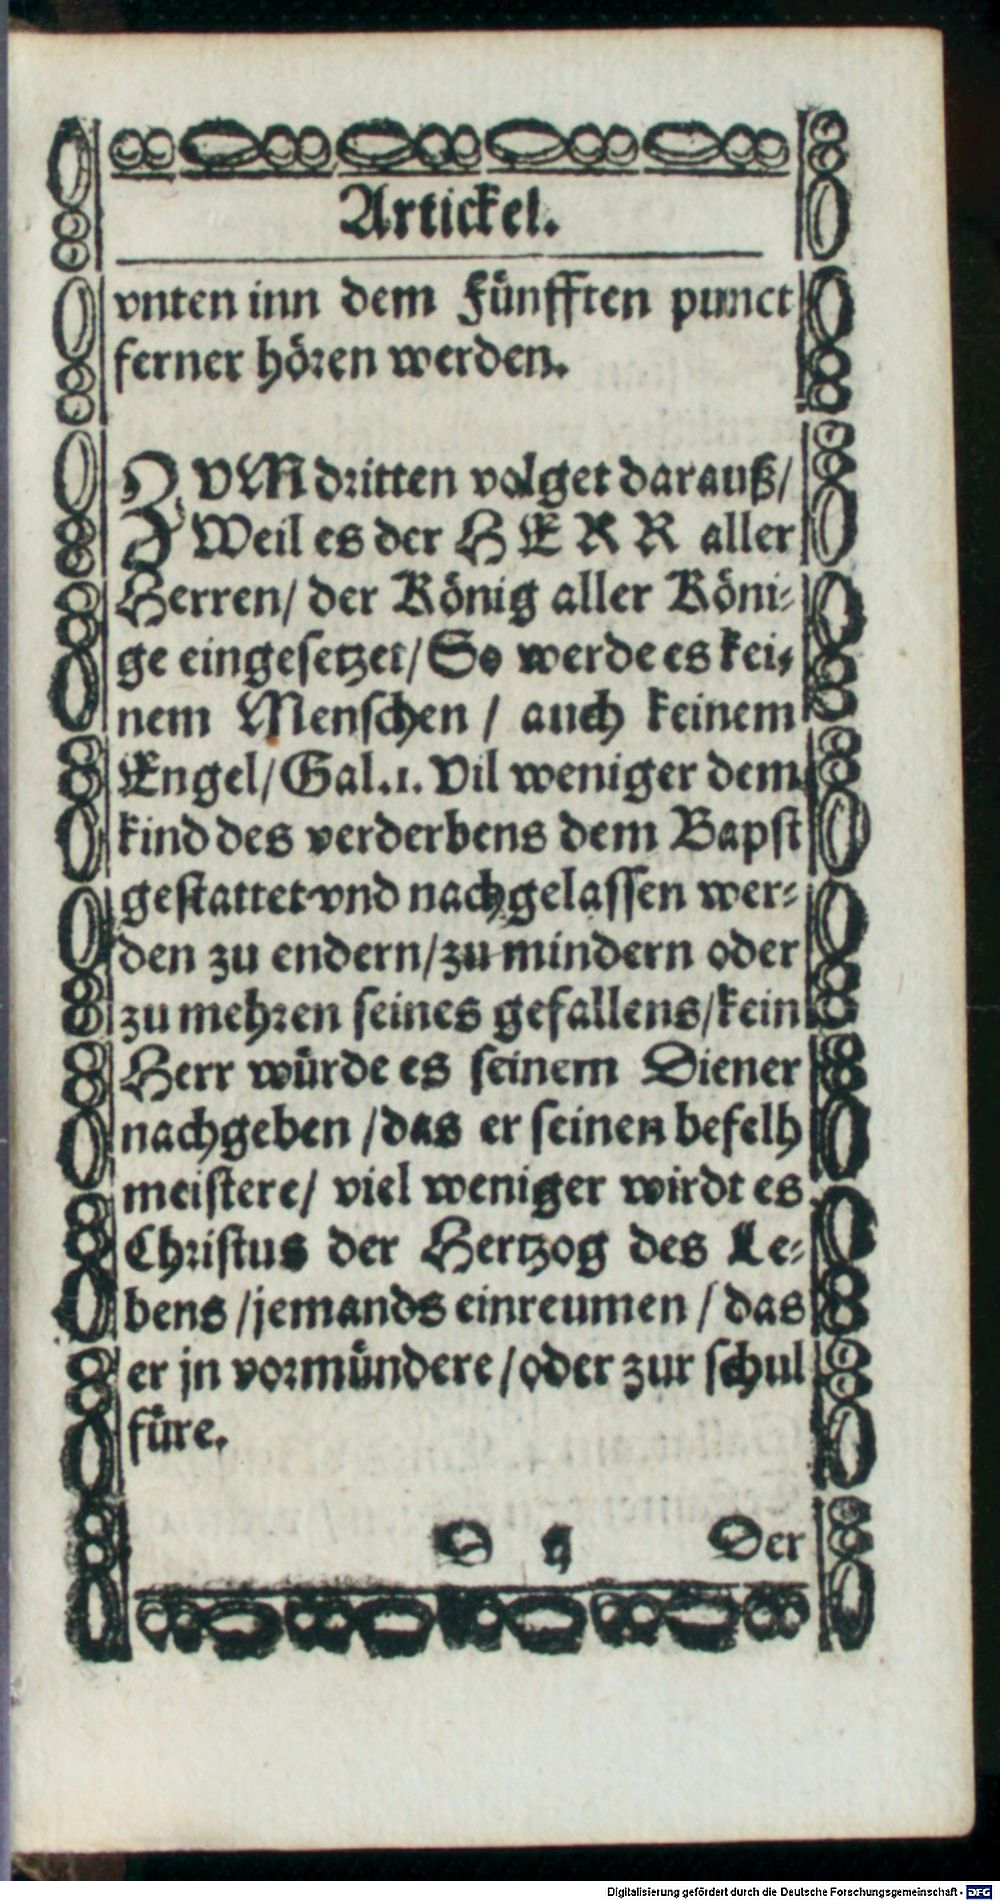 Artickel.
vnten inn dem Fünfften punct
ferner hören werden.
ZVM dritten volget darauß/
Weil es der HERR aller
Herren/ der König aller Köni-
ge eingesetzet/ So werde es kei-
nem Menschen / auch keinem
Engel/ Gal.1. Vil weniger dem
kind des verderbens dem Bapst
gestattet vnd nachgelassen wer-
den zu endern/ zu mindern oder
zu mehren seines gefallens/ kein
Herr würde es seinem Diener
nachgeben / das er seinen befelh
meistere/ viel weniger wirdt es
Christus der Hertzog des Le-
bens / jemands einreumen / das
er jn vormündere / oder zur schul
füre.
D
Der
Digitalisierung gefördert durch die Deutsche Forschungsgemeinschaft - DFG